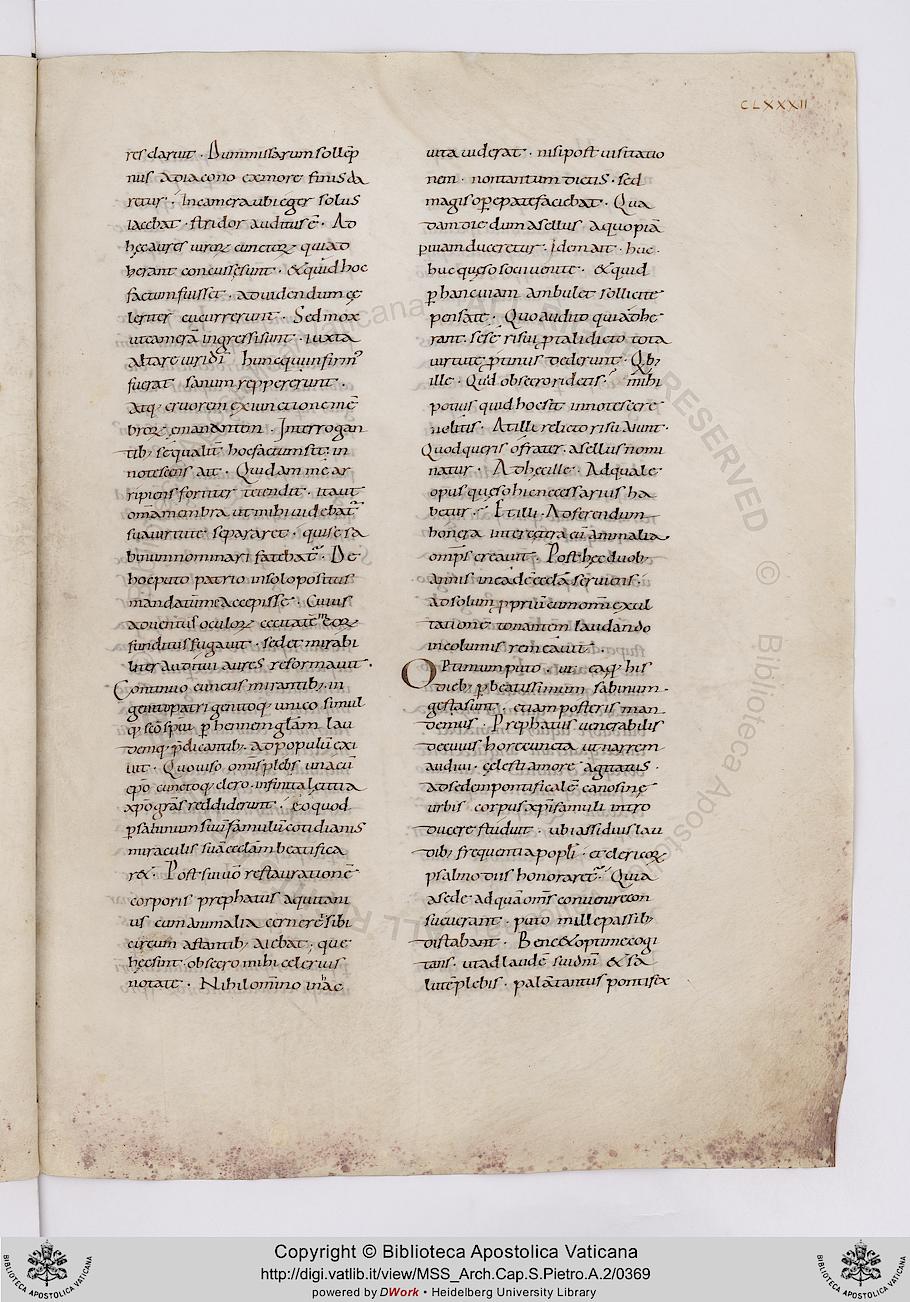 CLXXXII
res daruit · Dum missarum sollēp
niis a diacono ex more finis da
retur · In camera ubi eger solus
iacebat · stridor auditus ē · Ad
hęc aures uiroꝝ cunctoꝝ qui ad
herant concussę sunt · & quid hoc
factum fuisset · ad uidendum cę
leriter cucurrerunt · Sed mox
ut camerā ingressi sunt · iuxta
altare uiridī hunc qui infirmꝰ
fuerat sanum reppererunt ·
atq; cruorem ex iunctione mē
broꝝ emanantem · Interrogan
tib; se qualit̄ hoc factum sit · in
notescens ait · Quidam me ar
ripiens fortiter tetendit · ita ut
om̄a membra ut mihi uidebat᷑
sua uirtute separaret · qui se sa
binum nominari fatebat᷑ · De
hoc puto patrio in solo positus
mandatum me accepisse · Cuius
aduentus oculoꝝ cecitatē meoꝝ
funditus fugauit · sed et mirabi
liter auditui aures reformauit ·
Continuo cunctis mirantib; · in
genito patri genitoq; unico simul
q; scō spūi p̱hennem glām lau
demq; p̄dicantib; · ad populū exi
uit · Quo uiso omīs plebs una cū
ep̄o cunctoq; clero · infinita lętitia
xp̄o grās reddiderunt · eo quod
p̱ sabinum suū famulū cotidianis
miraculis suā ecclām beatifica
r& · Post suiuō restaurationē
corporis prephatus aquitani
us cum animalia cerneret sibi
circum astantib; aiebat · que
hęc sint · obsecro mihi celerius
notate · Nihil om̄ino in hac
uita uiderat · nisi post uisitatio
nem · non tantum dictis · sed
magis ope patefaciebat · Qua
dam die dum asellus a quopiā
p uiam duceretur · Idem ait · huc
huc quęso socii uenite · & quid
p̱ hanc uiam ambulet sollicite
pensate · Quo audito qui adhe
rant · sese risui p̱ tali dicto tota
uirtute p̱tinus dederunt · Qb;
ille · Quid obsecro ridetis · mihi
potius quid hoc sit innotescere
uelitis · At illi relicto risu aiunt ·
Quod queris o frater · asellus nomi
natur · Ad hęc ille · Ad quale
opus quęso hic necessarius ha
betur · Et illi · Ad ferendum
honera inter cętera cū animalia
omp̄s creauit · Post hęc duob;
annis in eadē ecclā seruiens ·
ad solum p̱priū cum nom̄i exul
tatione tonantem laudando
incolumis remeauit ·
Optimum puto · uti eaq; his
dieb; p̱ beatissimum sabinum
gesta sunt · etiam posteris man
demus · Prephatus uenerabilis
de cuius hortē cuncta ut narrem
audiui · cęlesti amore agitatus ·
ad sedem pontificalē canosinę
urbis corpus xp̄i famuli intro
ducere studuit · ubi assiduis lau
dib; frequentia popl̄i · et clericoꝝ
psalmodiis honoraret᷑ · Quia
a sede ad quā om̄s conuenire con
sueuerant · puto mille passib;
distabant · Bene & optime cogi
tans · ut ad laudē sui dn̄i & sa
lutē plebis · palā tantus pontifex
Copyright © Biblioteca Apostolica Vaticana
http://digi.vatlib.it/view/MSS_Arch.Cap.S.Pietro.A.2/0369
powered by DWork • Heidelberg University Library
BIBLIOTECA APOSTOLICA VATICANA
BIBLIOTECA APOSTOLICA VATICANA